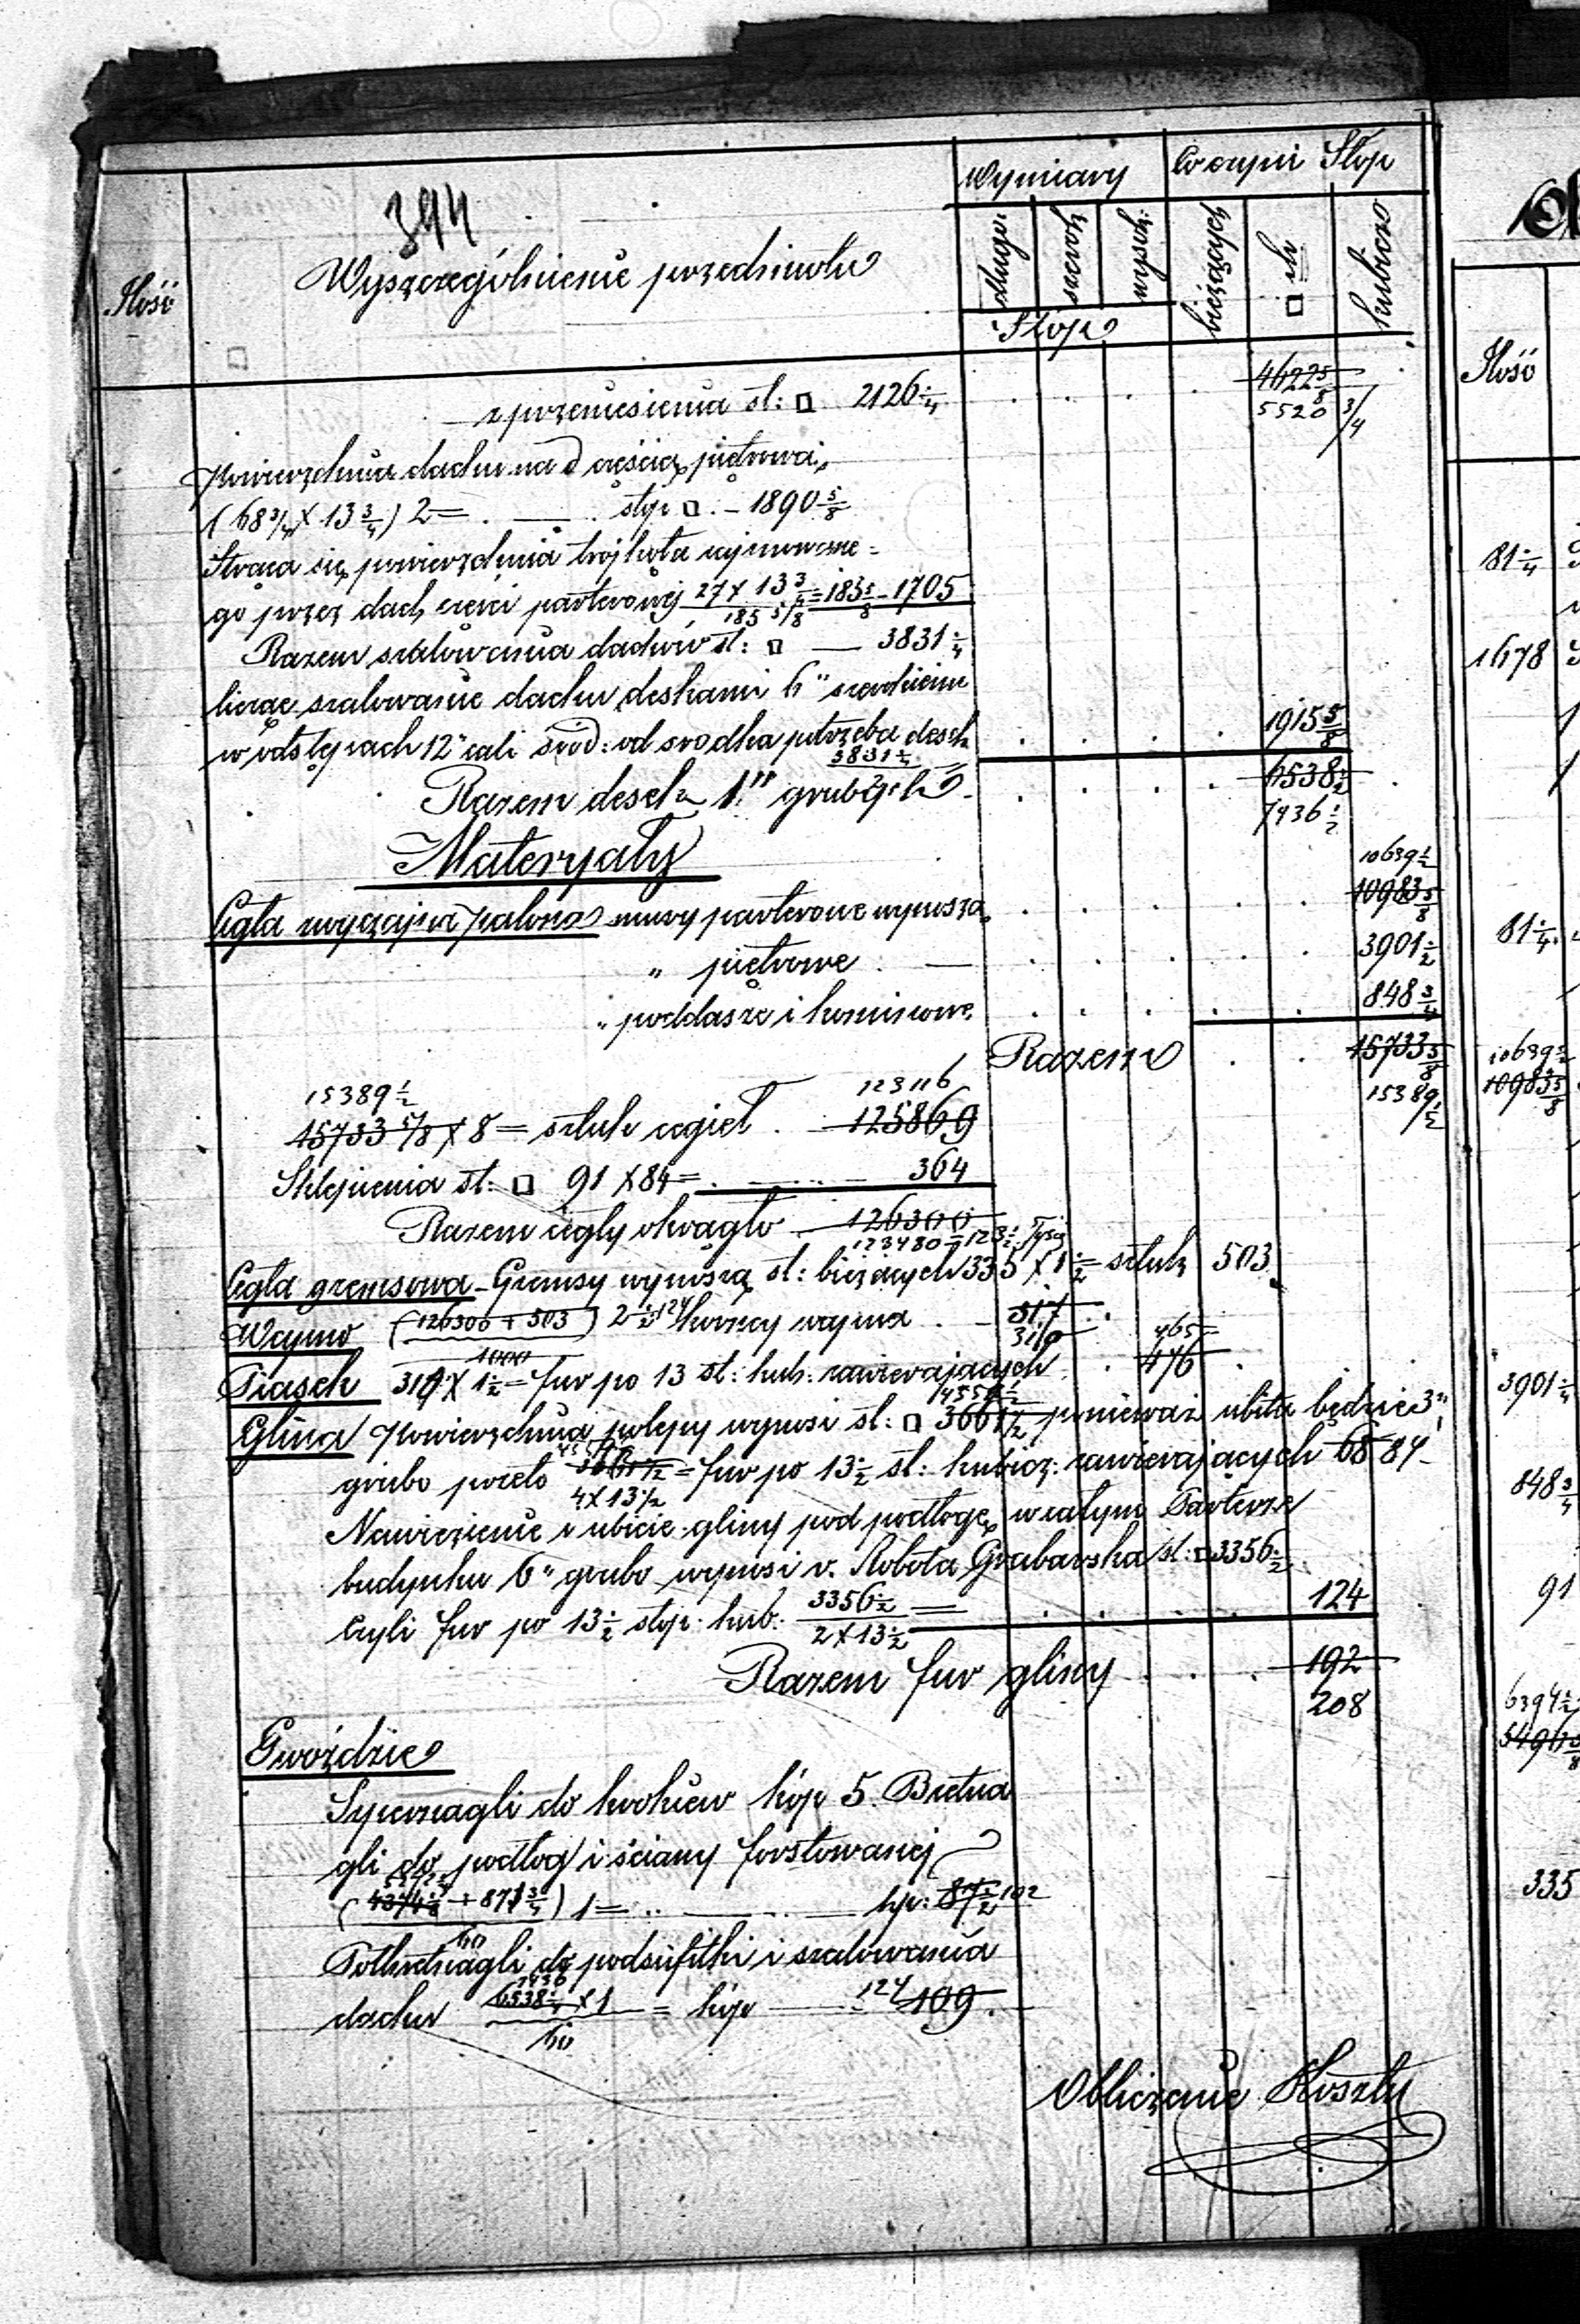 394
Ilość
Wyszczególnienie przedmiotu
Wymiary
Co czyni Stóp
długo:
szerok:
wysok:
Stop
bieżących
□ ch
kubiczo
z przeniesienia st: □ 2126 1/4 46225/8
5520 3/4
Powierzchnia dachu na d częścią piętrową,
(68 3/4 X 13 3/4) 2 = stp □ - 1890 5/8
Strąca się powierzchnia trójkąta zajmowane=
go przez dach części parterowej 27 X 13 3/4 = 183 5/8 - 1705
185 5/8
Razem szalowania dachów st: □ — 3831 1/4
licząc szalowanie dachu deskami 6" szerokiemi
w odstępach 12" cali środ: od srodka potrzeba desek 1915 5/8
3831 1/4
2
Razem desek 1" grubych 6538 1/2
7436 1/2
Materyały
10639 1/2
Cegła zwyczajna palona mury parterowe wynoszą 10983 5/8
" piętrowe — 3901 1/2
" poddasze i kominowe 848 3/4
Razem 15733 5/8
15389 1/2
15389 1/2 123116
15733 5/8 X 8 = sztuk cegieł 125869
Sklepienia st: □ 91 X 84 = 364
Razem cegły okrągło 126300
123480 = 123 1/2 Tysią
Cegła gzemsowa - Gzemsy wynoszą st: bieżących 335 X 1 1/2 sztuk 503
Wapno (126300 + 503) 2 1/2 korzecy wapna - 317
1000 310
465
Piasek 317 X 1 1/2 = fur po 13 st: kub: zawierających 476
Glina Powierzchnia polepy wynosi st: □ 3661 1/2 ponieważ ubita będzie 3"
grubo przeto 3661 1/2 = fur po 13 1/2 st: kubicz: zawierających 68 84
4 X 13 1/2
Nawiezienie i ubicie gliny pod podłogę w całym Parterze
budynku 6" grubo wynosi v. Robota Grabarska st: □ 3356 1/2
Czyli fur po 13 1/2 stóp: kub: 3356 1/2 = 124
2 X 13 1/2
Razem fur gliny 192
208
Gwoździe
Spernagli do krokiew kóp 5. Bretna
gli do podłog i ściany forstowanej
( + 871 3/4) 1 = — kp: 87 1/2 102
60
do podsufitki i szalowania
7436
dachu 6538 1/4 X 1 = kóp — 124 109.
60
Obliczanie Koszty
Ilość
81 1/4
1678
81 1/4
10639 1/2
10983 5/8
3901 1/4
848 3/4
91
6394 1/2
5496 5/8
335